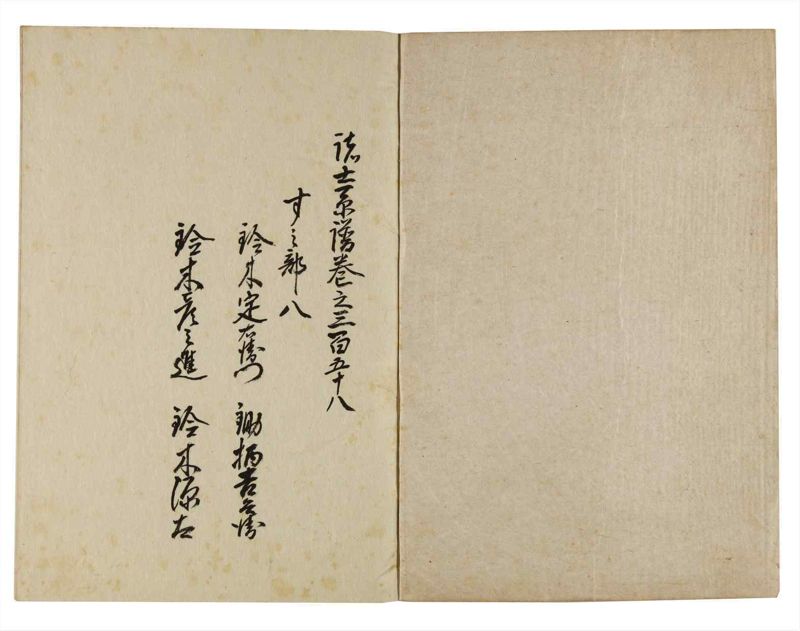 諸士系譜巻之三百五十八
す之部 八
鈴木定右衛門 鋤柄吉兵衛
鈴木彦之進 鈴木源太